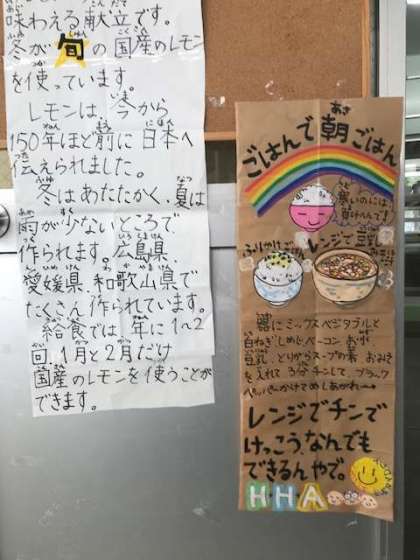 味わえる献立です。
冬が旬の国産のレモン
を使っています。
レモンは、今から
150年ほど前に日本へ
伝えられました。
冬はあたたかく、夏は
雨が少ないところで
作られます。広島県、
愛媛県、和歌山県で
たくさん作られています。
給食では、年に1~2
回、1月と2月だけ
国産のレモンを使うことが
できます。
ごはんで朝ごはん
ふりかけごはん
レンジで
器にミックスベジタブルと
白ねぎ しめじ ベーコン お水
豆乳 とりがらスープの素 おみそ
を入れて 3分チンして、ブラック
ペッパーかけてめしあがれ〜
レンジでチンで
けっこうなんでも
できるんやで。
HHA